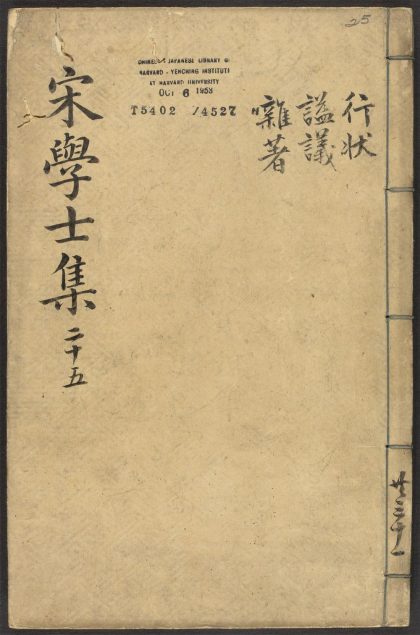 25
CHINESE - JAPANESE LIBRARY OF
HARVARD - YENCHING INSTITUTE
AT HARVARD UNIVERSITY
OCT 6 1953
T5402 /4527
行状
謚議
雜著
宋學士集 二十五
共三十一